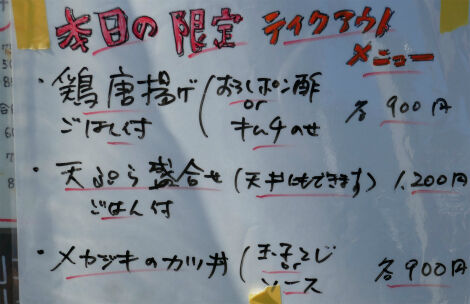 本日の限定 テイクアウト
メニュー
・鶏唐揚げ(おろしポン酢
or
ごはん付 キムチのせ 各900円
・天ぷら盛合せ(天丼にもできます) 1,200円
ごはん付
・メカジキのカツ丼(玉子とじ
or
ソース 各900円